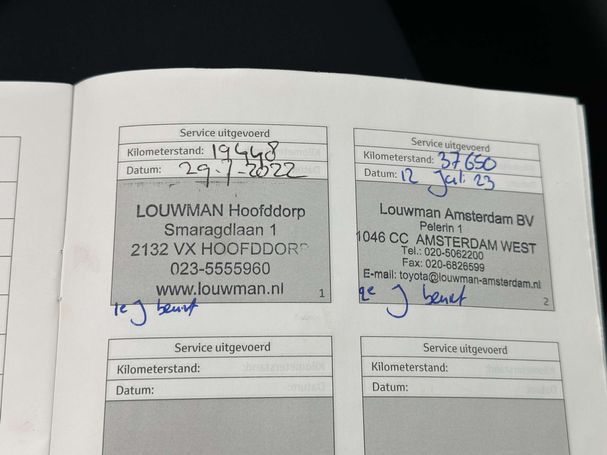 Service uitgevoerd
Kilometerstand: 19448
Datum: 29-7-2022
LOUWMAN Hoofddorp
Smaragdlaan 1
2132 VX HOOFDDORP
023-5555960
www.louwman.nl
1
1e J beurt
Service uitgevoerd
Kilometerstand: 37650
Datum: 12 Juli 23
Louwman Amsterdam BV
Pelerin 1
1046 CC AMSTERDAM WEST
Tel.: 020-5062200
Fax: 020-6826599
E-mail: toyota@louwman-amsterdam.nl
2
2e J beurt
Service uitgevoerd
Kilometerstand:
Datum:
Service uitgevoerd
Kilometerstand:
Datum: